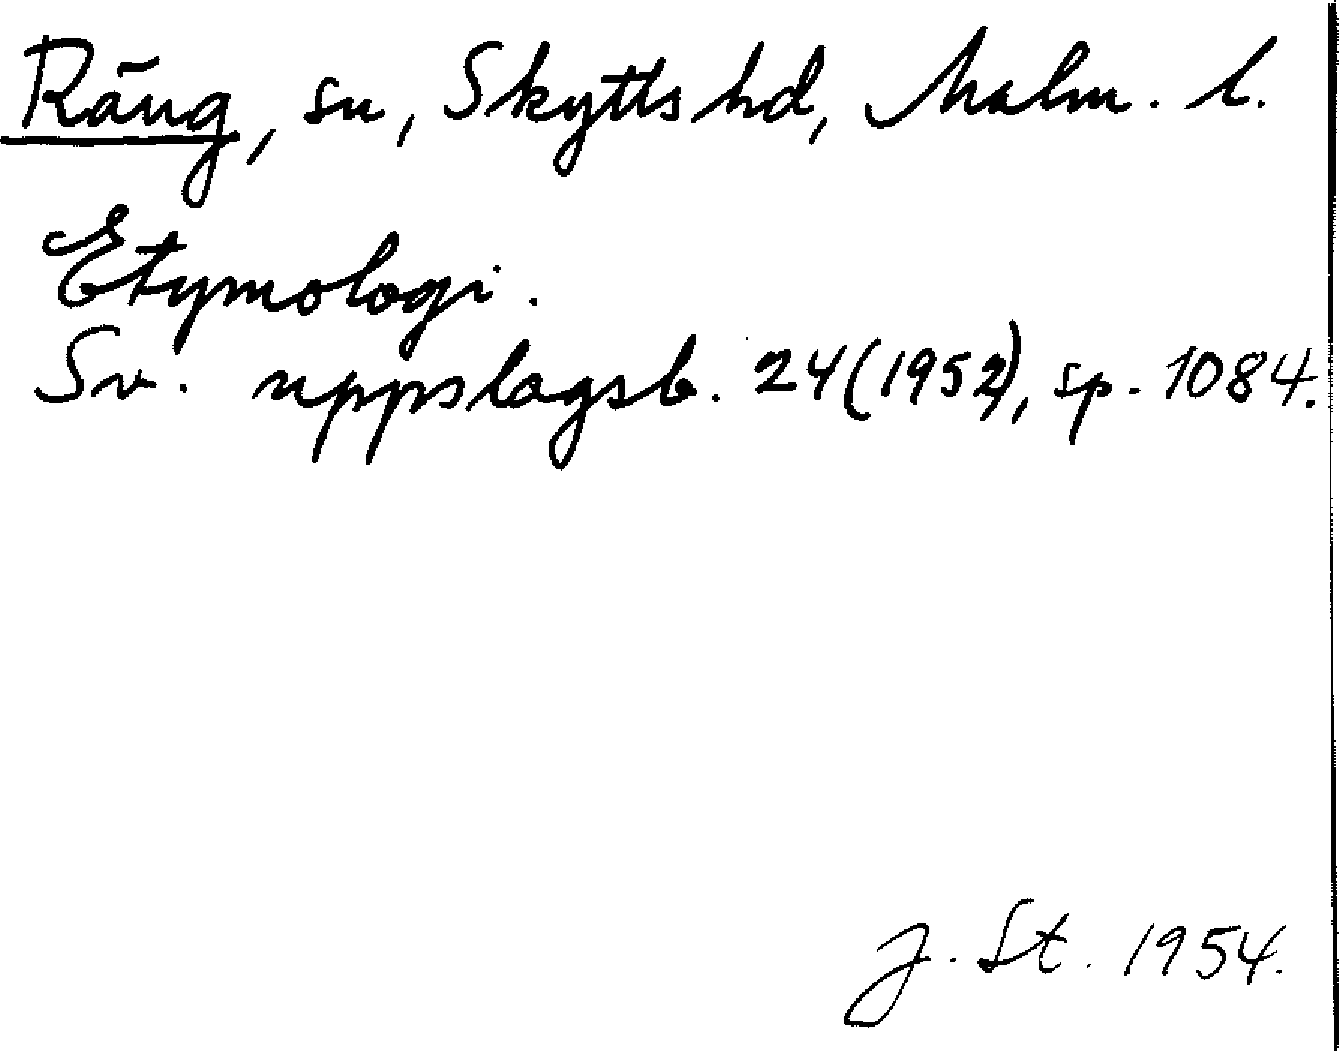 Räng, sn, Skytts hd, Malm. l.
Etymologi.
Sv. uppslagsb. 24 (1952), sp. 1084.
J. St. 1954.